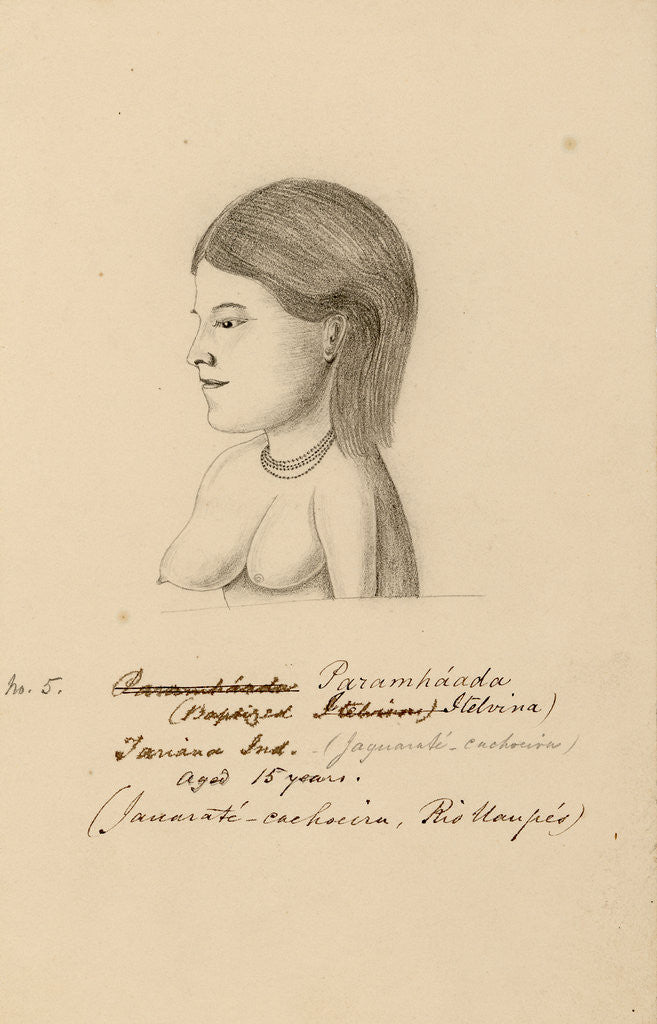 No. 5. Paramháada Paramháada
(Baptized Itelvina) Itelvina)
Tariana Ind. - (Jaguaraté-cachoeira)
aged 15 years.
(Jauaraté-cachoeira, Rio Uaupés)